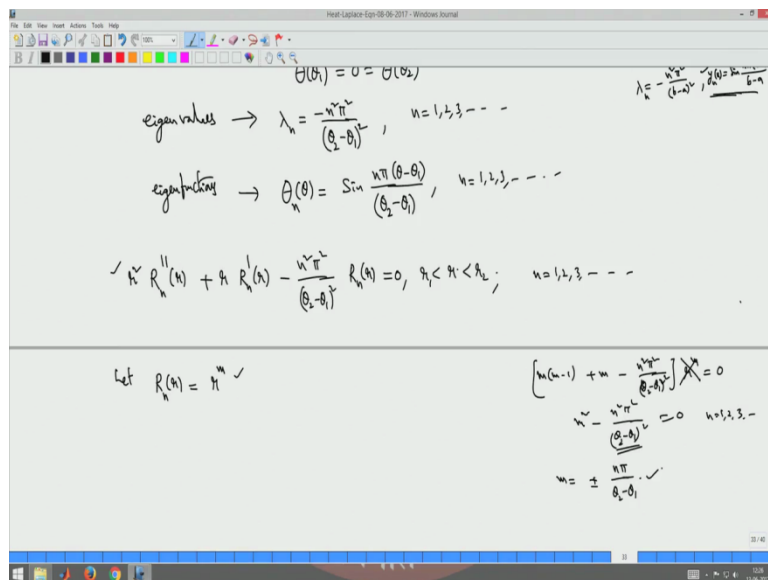 Heat-Laplace-Eqn-08-06-2017 - Windows Journal
File Edit View Insert Actions Tools Help
100%
B I
θ(θ₁) = 0 = θ(θ₂)
λₙ = -n²π²/(b-a)², yₙ(x) = Sin
eigenvalues → λₙ = -n²π²/(θ₂-θ₁)², n=1,2,3,- - - -
eigenfunctions → θₙ(θ) = Sin nπ(θ-θ₁)/(θ₂-θ₁), n=1,2,3,- - - -
✓ r² Rₙ''(r) + r Rₙ'(r) - n²π²/(θ₂-θ₁)² Rₙ(r) = 0, r₁ < r < r₂; n=1,2,3,- - -
Let Rₙ(r) = r^m ✓
[m(m-1) + m - n²π²/(θ₂-θ₁)²] r^m = 0
m² - n²π²/(θ₂-θ₁)² = 0 n=1,2,3,-
m = ± nπ/(θ₂-θ₁) . ✓
33 / 40
33
12:26